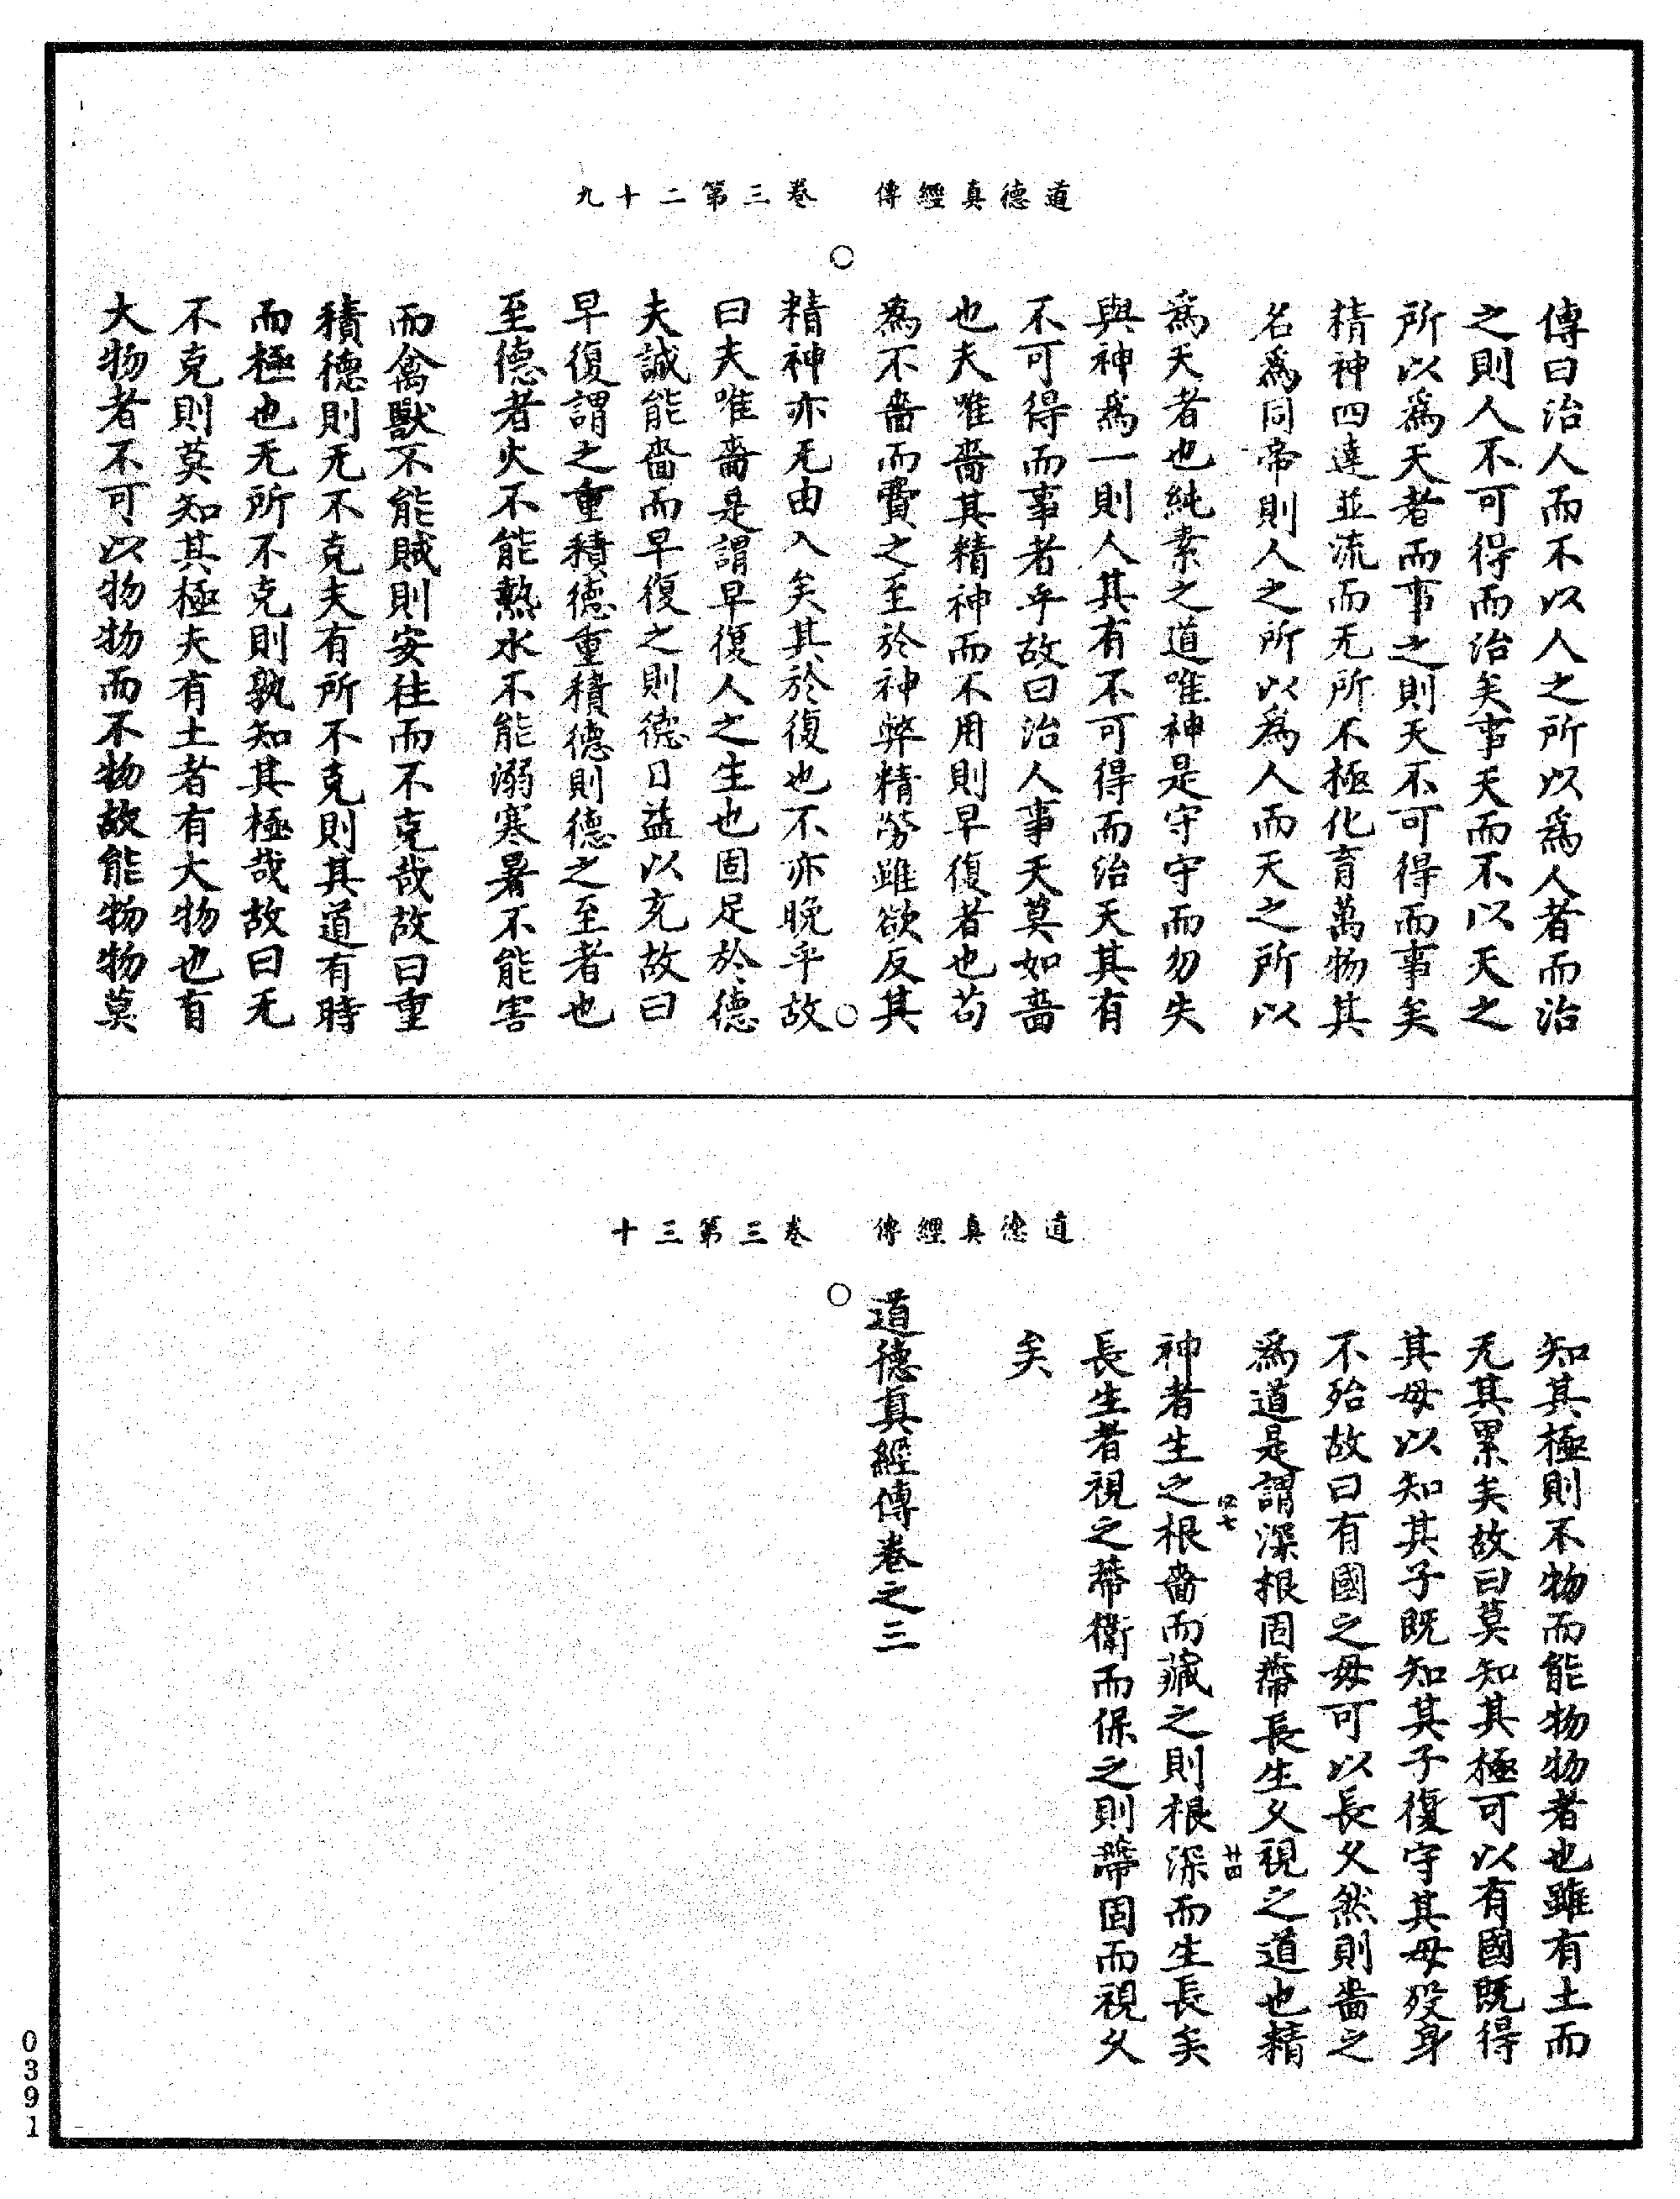 道德真經傳　卷三第二十九
傳曰治人而不以人之所以爲人者而治
之則人不可得而治矣事天而不以天之
所以爲天者而事之則天不可得而事矣
精神四達並流而无所不極化育萬物其
名爲同帝則人之所以爲人而天之所以
爲天者也純素之道唯神是守守而勿失
與神爲一則人其有不可得而治天其有
不可得而事者乎故曰治人事天莫如嗇
也夫唯嗇其精神而不用則早復者也苟
爲不嗇而費之至於神弊精勞雖欲反其
精神亦无由入矣其於復也不亦晚乎故
曰夫唯嗇是謂早復人之生也固足於德
夫誠能嗇而早復之則德日益以充故曰
早復謂之重積德重積德則德之至者也
至德者火不能熱水不能溺寒暑不能害
而禽獸不能賊則安往而不克哉故曰重
積德則无不克夫有所不克則其道有時
而極也无所不克則孰知其極哉故曰无
不克則莫知其極夫有土者有大物也有
大物者不可以物物而不物故能物物莫
道德真經傳　卷三第三十
知其極則不物而能物物者也雖有土而
无其累矣故曰莫知其極可以有國既得
其母以知其子既知其子復守其母歿身
不殆故曰有國之母可以長久然則嗇之
爲道是謂深根固蔕長生久視之道也精
神者生之根嗇而藏之則根深而生長矣
長生者視之蔕衛而保之則蔕固而視久
矣
道德真經傳卷之三
廿四
0391